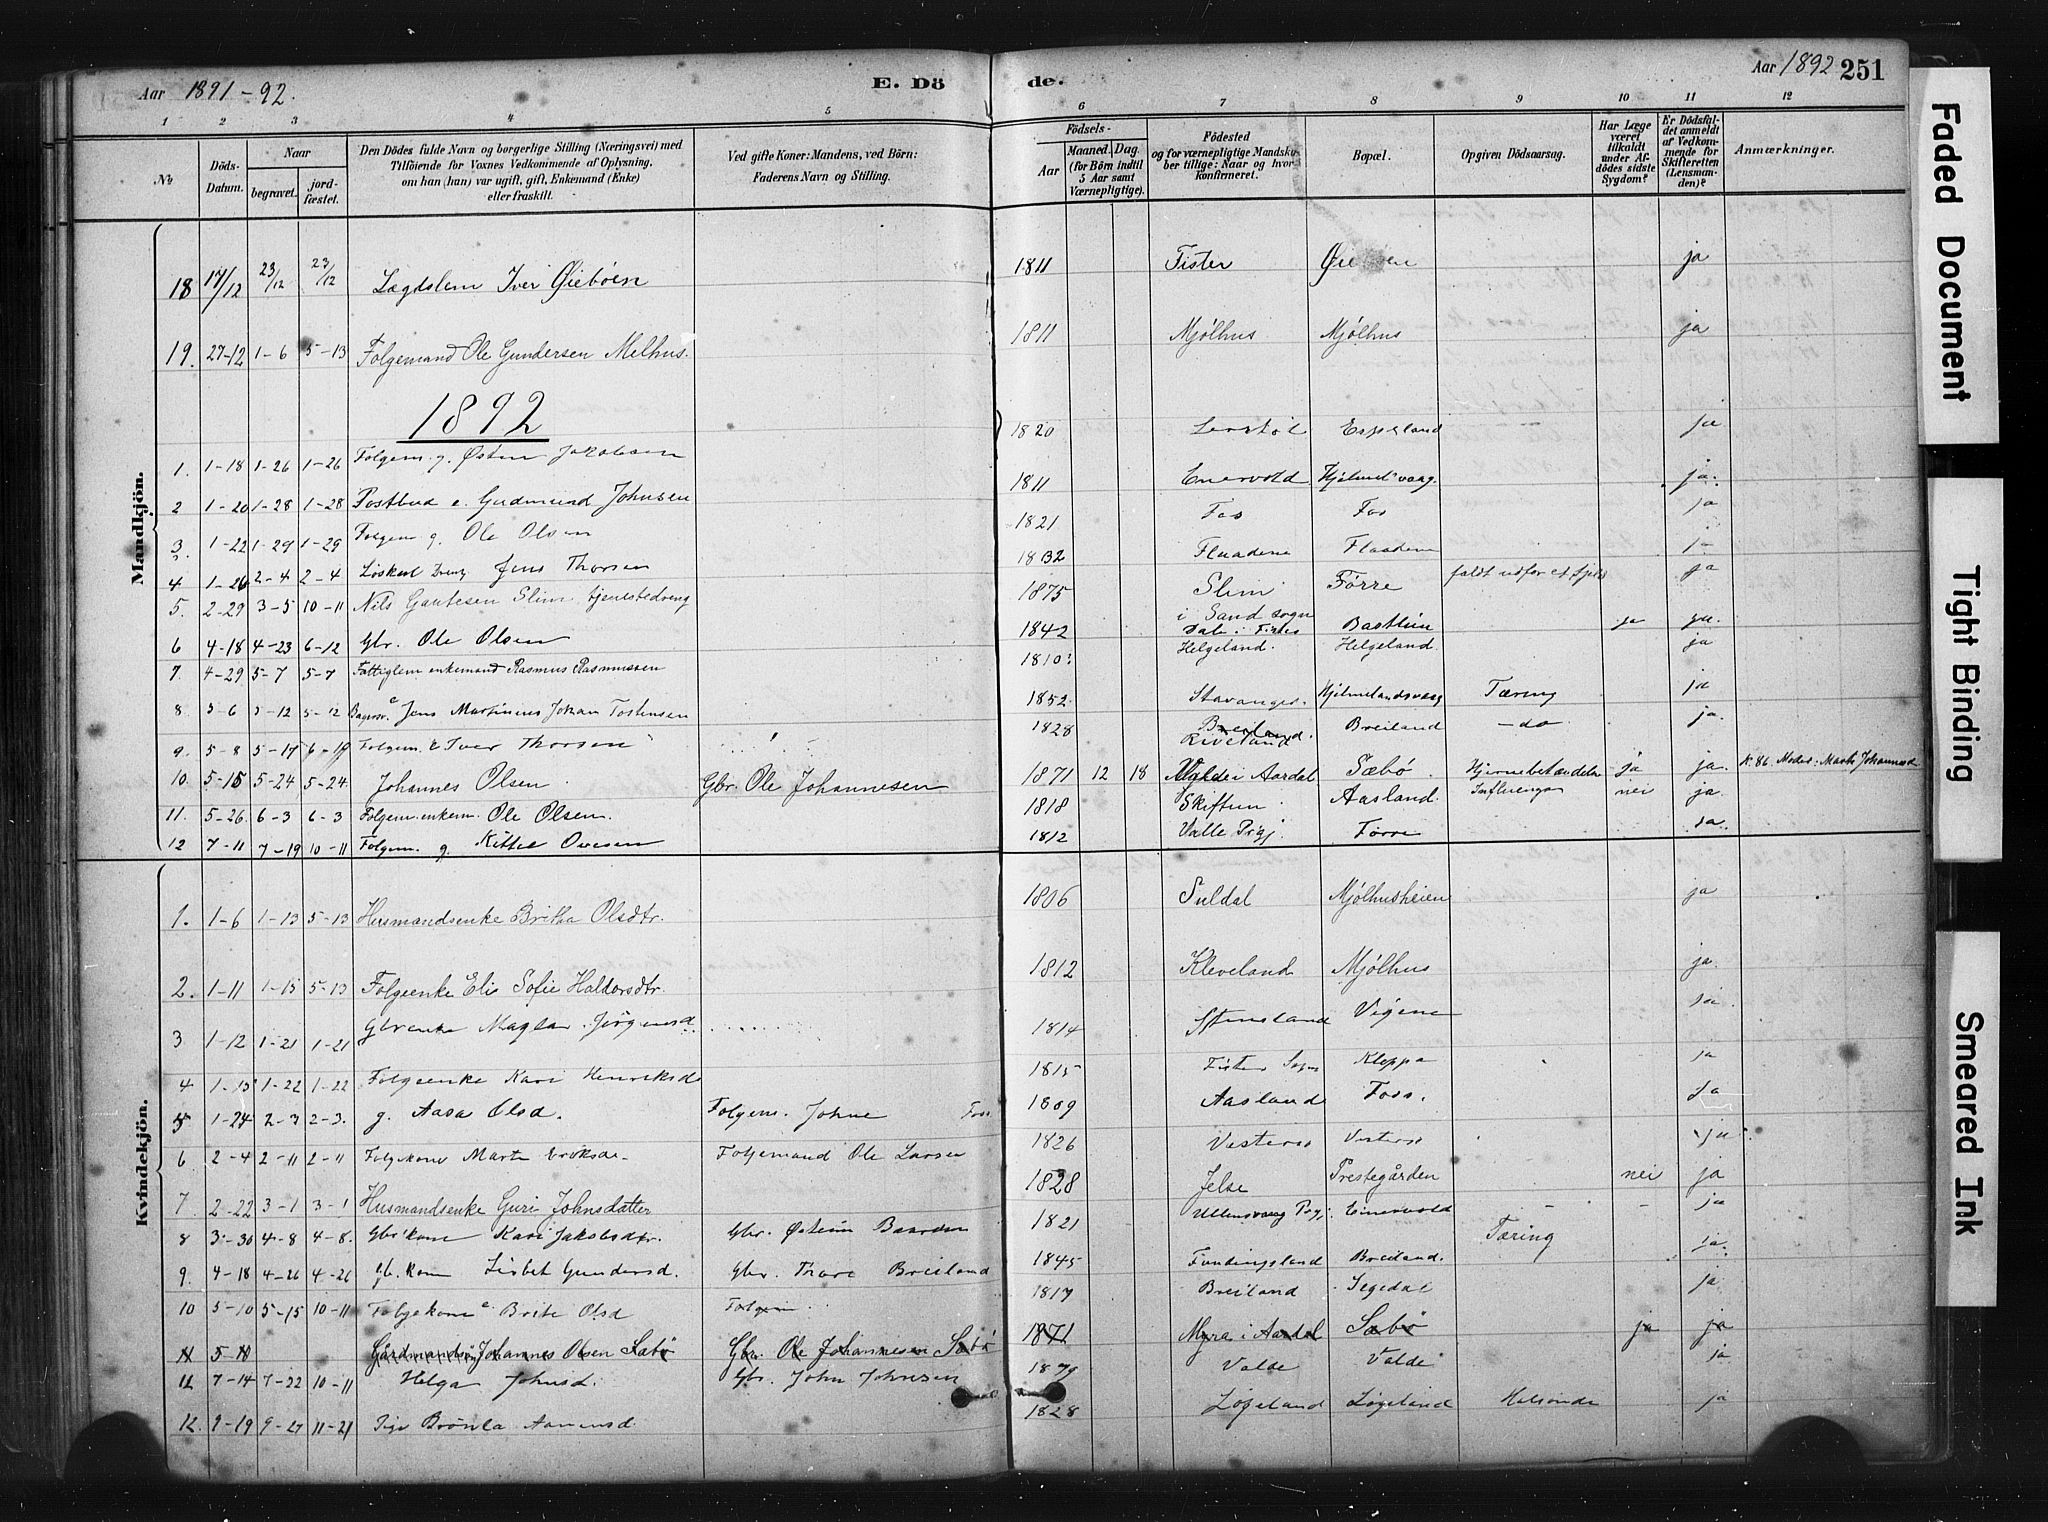 Aar 1891-92.
E. Dö
de.
Aar 1892 251
1 2 3 4 5 6 7 8 9 10 11 12
No
Döds-Datum.
Naar
begravet.
jord-fæstet.
Den Dödes fulde Navn og borgerlige Stilling (Næringsvei) med
Tilföiende for Voxnes Vedkommende af Oplysning,
om han (hun) var ugift, gift, Enkemand (Enke)
eller fraskilt.
Ved gifte Koner: Mandens, ved Börn:
Faderens Navn og Stilling.
Födsels-
Aar
Maaned. Dag.
(for Börn indtil
5 Aar samt
Værnepligtige).
Födested
og for værnepligtige Mandskaber tillige: Naar og hvor
konfirmeret.
Bopæl.
Opgiven Dödsaarsag.
Har Læge
været
tilkaldt
under Afdödes sidste
Sygdom?
Er Dödsfaldet anmeldt
af Vedkommende for
Skifteretten
(Lensmanden)?
Anmærkninger.
Mandkjön.
18 17/12 23/12 23/12 Lægdslem Iver Øiebøen 1811 Fister ja
19. 27-12 1-6 5-13 Folgemand Ole Gundersen Melhus. 1811 Mjølhus Mjølhus ja
1892
1. 1-18 1-26 1-26 Folgem. g. Østen Jakobsen 1820 Espeland ja
2 1-20 1-28 1-28 Postbud e. Gudmund Johnsen 1811 Enervold ja.
3. 1-22 1-29 1-29 Folgem g. Ole Olsen 1821 Fos Fos ja
4 1-26 2-4 2-4 Løskarl Jens Thorsen 1832 Flaadene Flaadene ja
5. 2-29 3-5 10-11 Nils Gautesen Slim tjenestedreng 1875 Slim i Sand sogn Førre faldt udfor et fjeld ja
6 4-18 4-23 6-12 Gbr. Ole Olsen 1842 Dale i Fister Bastlien ja ja
7 4-29 5-7 5-7 Fattiglem enkemand Rasmus Rasmussen 1810? Helgeland. Helgeland. ja
8 5-12 Jens Martinius Johan 1852 Stavanger. Hjelmelandsvaag Tæring ja
9 5-8 5-17 Folgem. E Iver Thorsen 1828 Breiland. Riveland Breiland -do ja.
10. 5-15 5-24 5-24 Johannes Olsen. Gbr. Ole Johannesen 1871 12 18 i Aardal Sæbø. Hjernebetændelse ja ja. K. 86. Moder: Johannesd
11. 5-26 6-3 6-3 Folgem. enkem. Ole Olsen. 1818 Skiftun Aasland. Influenza nei ja.
12 7-11 7-19 10-11 Folgem. g. Kittel Ovesen 1812 Valle Prgj Førre ja.
Kvindekjön.
1. 1-6 1-13 5-13 Husmandsenke Britha Olsdtr. 1806 Suldal Mjølhusheien ja
2. 1-11 1-15 5-13 Folgeenke Elis Sofie Haldorsdtr. 1812 Kleveland Mjølhus ja.
3 1-12 1-21 1-21 Gbrenke Jørgensd 1814 Stensland Vigene ja
4 1-15 1-22 1-22 Folgeenke Kari Henriksd 1815 Fister Sogn Kleppa ja
5 1-24 2-3 2-3. g. Aasa Olsd. Folgem. Johne Foss 1809 Aasland Foss. Ja
6 2-4 2-11 2-11 Folgekone Marta Folgemand Ole Larsen 1826 ja
7. 2-22 3-1 3-1 Husmandsenke Guri Johnsdatter 1828 Jelse Prestegården nei ja
8 3-30 4-8 4-8. Gbr kone Kari Jakobsdtr. Gbr. Østein Baardsen 1821 Ullensvang Prgj. Einervold - - ja
9. 4-18 4-26 4-26 Gb. kone Lisbet Gundersd. Gbr. Thore Breiland 1845 Fundingsland Breiland. Tæring ja.
10 5-10 5-15 10-11 Folgekone e Brite Olsd Folgem. 1817 Breiland Segedal ja
11 5-11 Johannes Olsen Sæbø Gbr. Ole Johannesen Sæbø 1871 Myra i Aardal Sæbø ja ja
11 7-14 7-22 10-11 Helga Johnsd. Gbr. John Johnsen Valde Valde ja
12. 9-19 9-27 11-21 1828 Løgeland Løgeland ja
Faded Document
Tight Binding
Smeared Ink